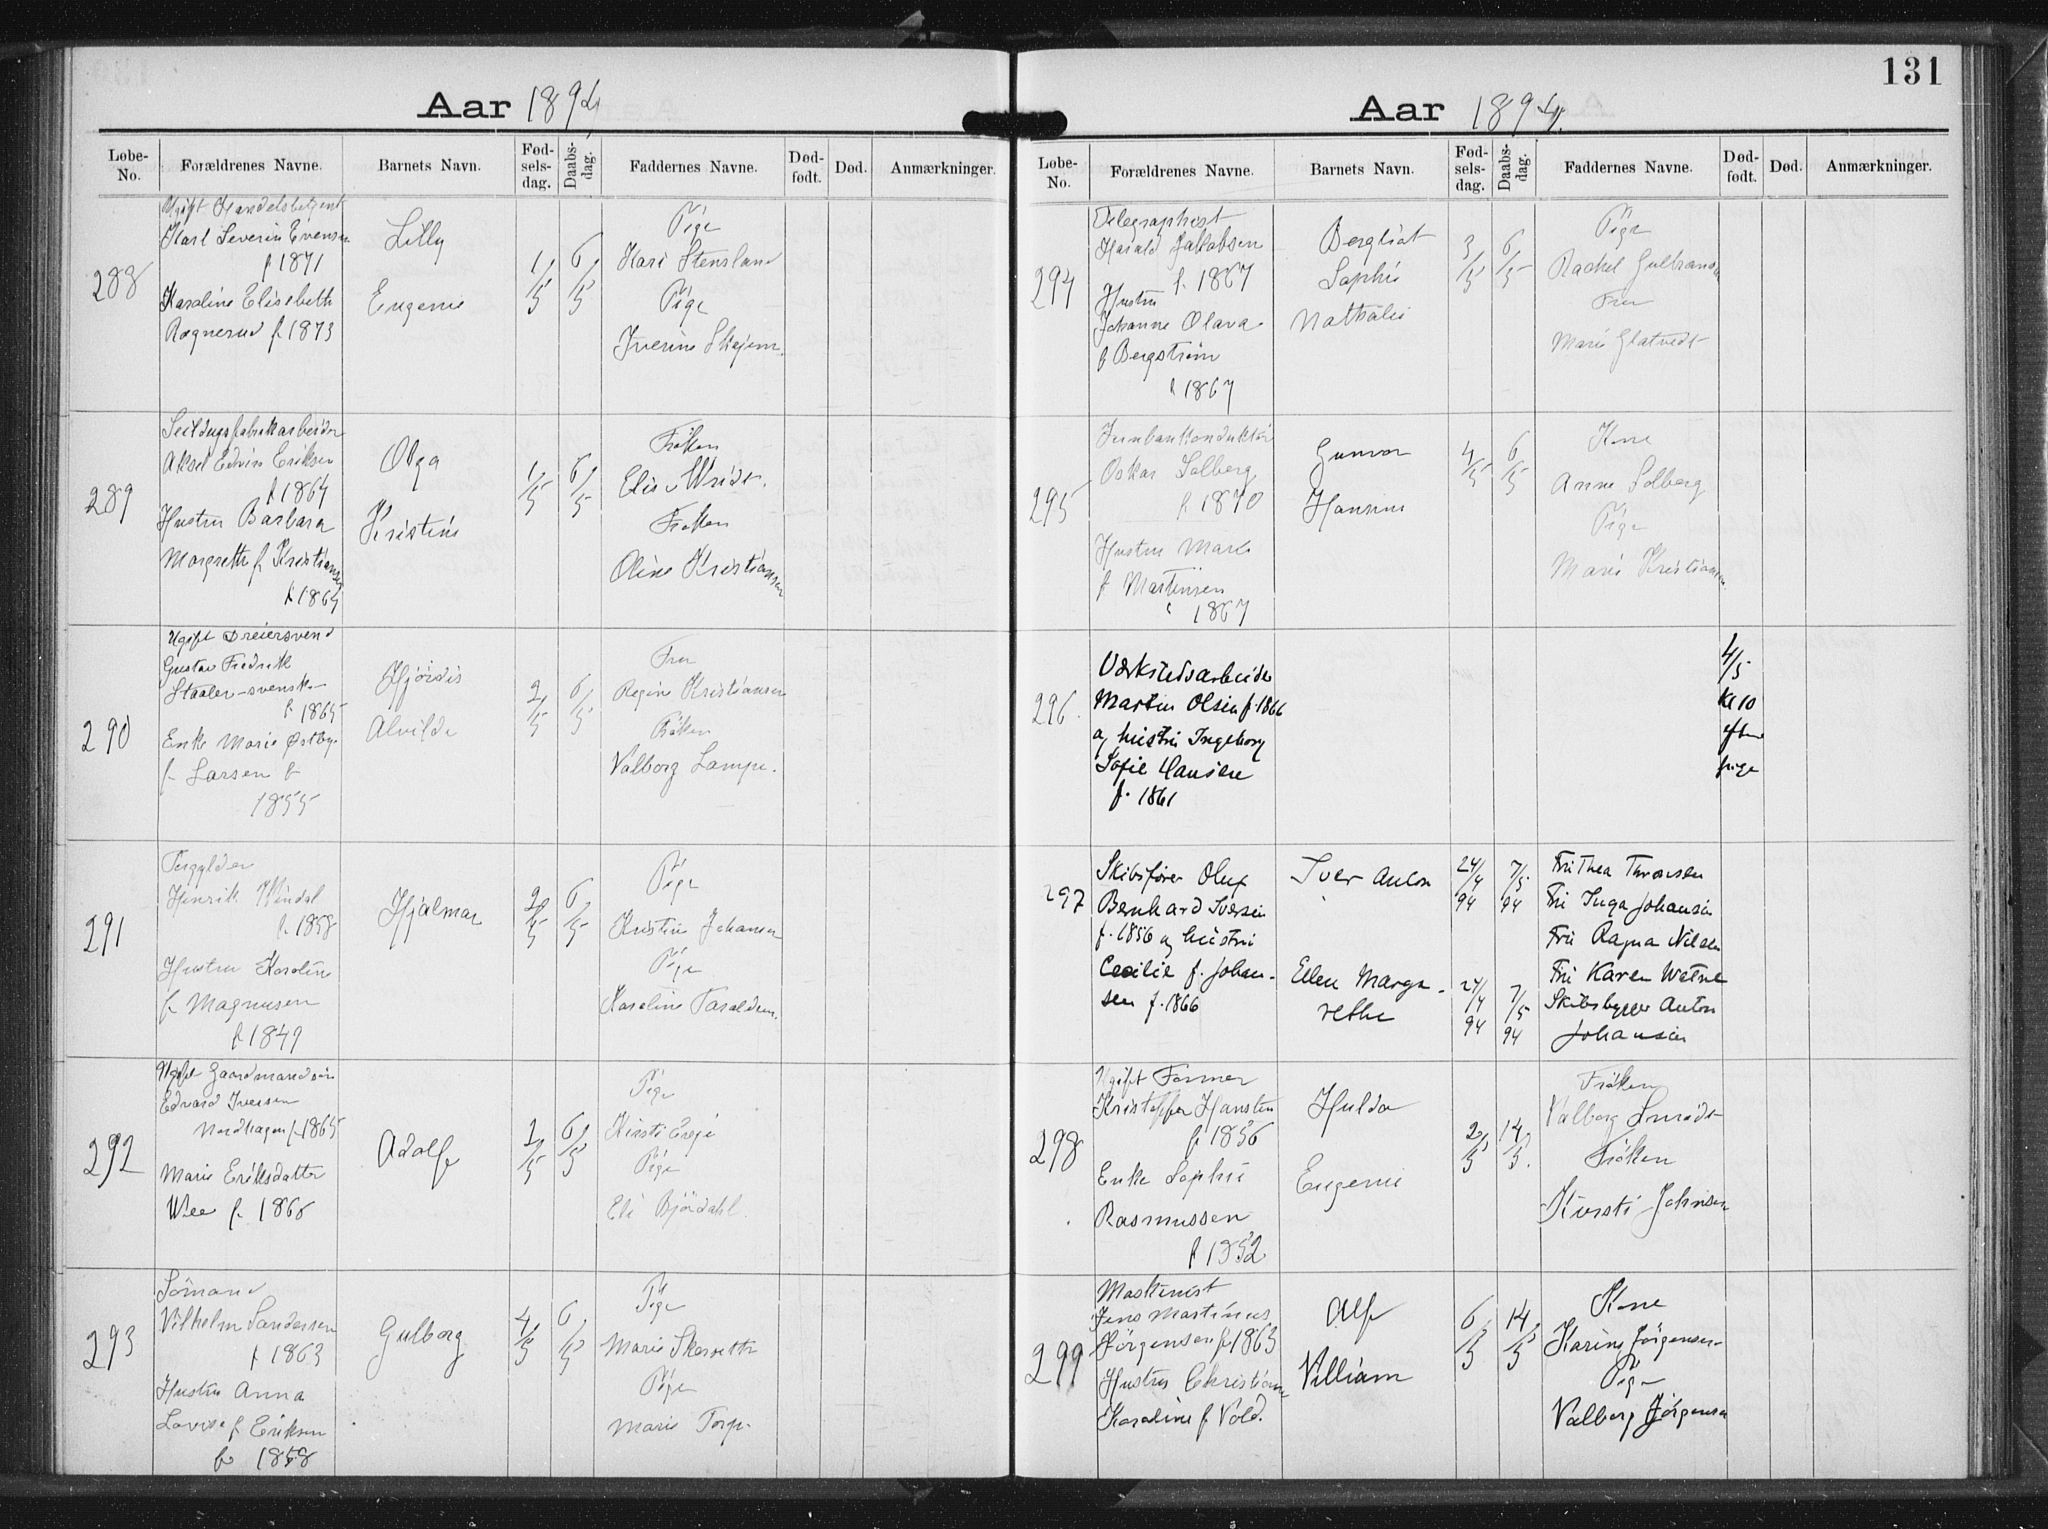 Aar 1894
Løbe-No. Forældrenes Navne. Barnets Navn. Fødselsdag. Daabsdag. Faddernes Navne. Dødfødt. Død. Anmærkninger.
288
Ugift Handelsbetjent
Karl Severin Evensen
f 1871
Karoline Elisebeth
Rognerud f 1873
Lilly
Eugenie
1/5
6/5
Pige
Kari Stensland
Pige
Iverine Skejem
289
Seildugsfabrikarbeider
Aksel Edvin Eriksen
f 1864
Hustru Barbara
Margreth f Kristiansen
f 1864
Olga
Kristine
1/5
6/5
Frøken
Elise
Frøken
Oline Kristiansen
290
Ugift Dreiersvend
Gustav Fredrik
Staaler - svensk -
f 1865
Enke Marie Østby
f Larsen f
1855
Hjørdis
Alvilde
2/5
6/5
Fru
Regine Kristiansen
Frøken
Valborg Lampe.
291
Forgylder
Henrik Windal
f. 1858
Hustru Karoline
f Magnusen
f 1849
Hjalmar
2/5
6/5
Pige
Kristine Johansen
Pige
Karoline Taraldsen
292
Ugift Gaardmandssøn
Edvard Iversen
Nordhagen f 1865
Marie Eriksdatter
Wee f 1866
Adolf
2/5
6/5
Pige
Kirsti
Pige
Eli Bjørdahl
293
Sømand
Vilhelm Sandersen
f 1863
Hustru Anna
Lovise f Eriksen
f 1858
Gulborg
4/5
6/5
Pige
Marie
Pige
Marie Torp.
131
Aar 1894.
Løbe-No. Forældrenes Navne. Barnets Navn. Fødselsdag. Daabsdag. Faddernes Navne. Dødfødt. Død. Anmærkninger.
294
Telegraphist
Harald Jakobsen
f. 1867
Hustru
Johanne Olava
f Bergstrøm
f 1867
Bergliot
Sophie
Nathalie
3/5
6/5
Pige
Rachel Gulbransen
Fru
Marie Glatvedt
295
Jernbankonduktør
Oskar Solberg
f 1870
Hustru Marie
f Martinsen
1867
Gunvor
Hansine
4/5
6/5
Kone
Anne Solberg
Pige
Marie Kristiansen
296.
Værkstedsarbeider
Martin Olsen f. 1866
og hustru Ingeborg
Sofie Hansen
f. 1861
4/5
kl 10
efterm
pige
297
Skibsfører Oluf
Bernhard Iversen
f. 1856 og hustru
Cecilie f. Johan-
sen f. 1866
Iver Anton
24/4 94
7/5 94
Ellen Marga-
rethe
24/4 94
7/5 94
Fru Thea Thronsen
Fru Inga Johansen
Fru Ragna Nilsen
Fru Karen Wetne
Skibsbygger Anton
Johansen
298
Ugift Former
Kristoffer Hansen
f 1856
Enke Sophie
Rasmussen
f 1852
Hulda
Eugenie
2/5
14/5.
Frøken
Valborg
Frøken
Kirsti Johnsen
299
Maskinist
Jens Martinus
Jørgensen f 1863
Hustru Christiane
Karoline f Vold.
Alf
Villiam
6/5
14/5
Kone
Karine Jørgensen
Pige
Valborg Jørgensen